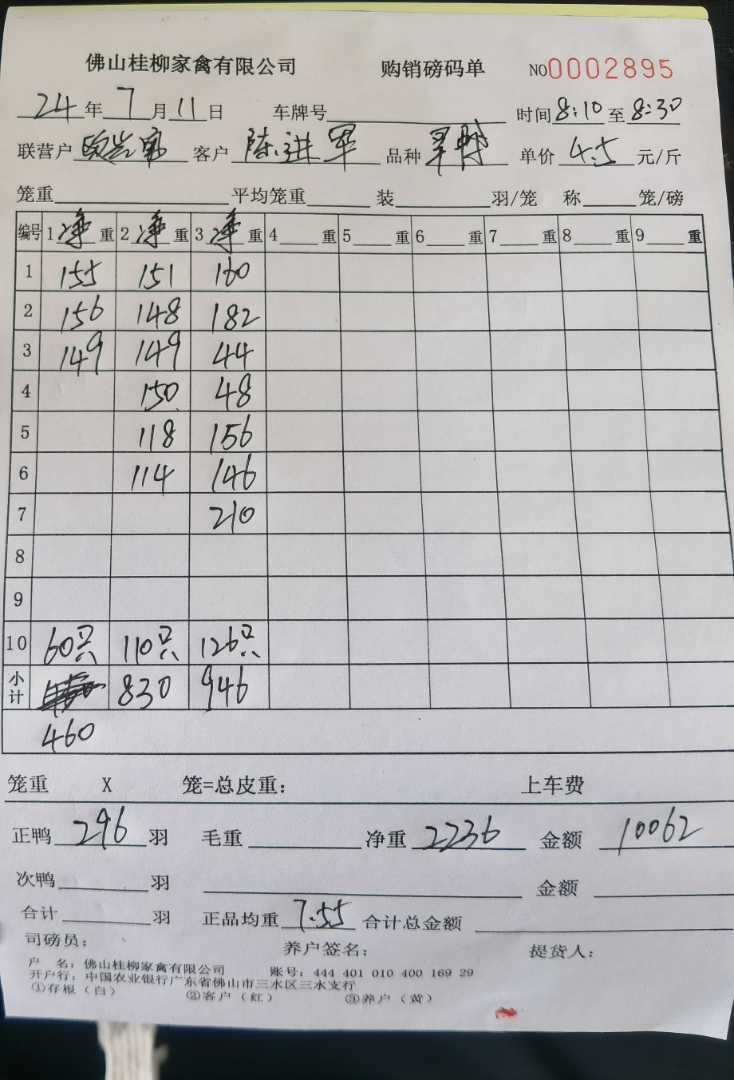 佛山桂柳家禽有限公司 购销磅码单 NO0002895
24年7月11日 车牌号 时间8:10至8:30
联营户 客户 陈进军 品种 单价 4.5 元/斤
笼重 平均笼重 装 羽/笼 称 笼/磅
编号 1净重 2净重 3净重 4 重 5 重 6 重 7 重 8 重 9 重
1 155 151 160
2 156 148 182
3 149 149 44
4 150 48
5 118 156
6 114 146
7 210
8
9
10 60只 110只 126只
小计 830 946
460
笼重 X 笼=总皮重： 上车费
正鸭 296 羽 毛重 净重 2236 金额 10062
次鸭 羽 金额
合计 羽 正品均重 7.55 合计总金额
司磅员： 养户签名： 提货人：
户 名：佛山桂柳家禽有限公司 账号：444 401 010 400 169 29
开户行：中国农业银行广东省佛山市三水区三水支行
①存根（白） ②客户（红） ③养户（黄）